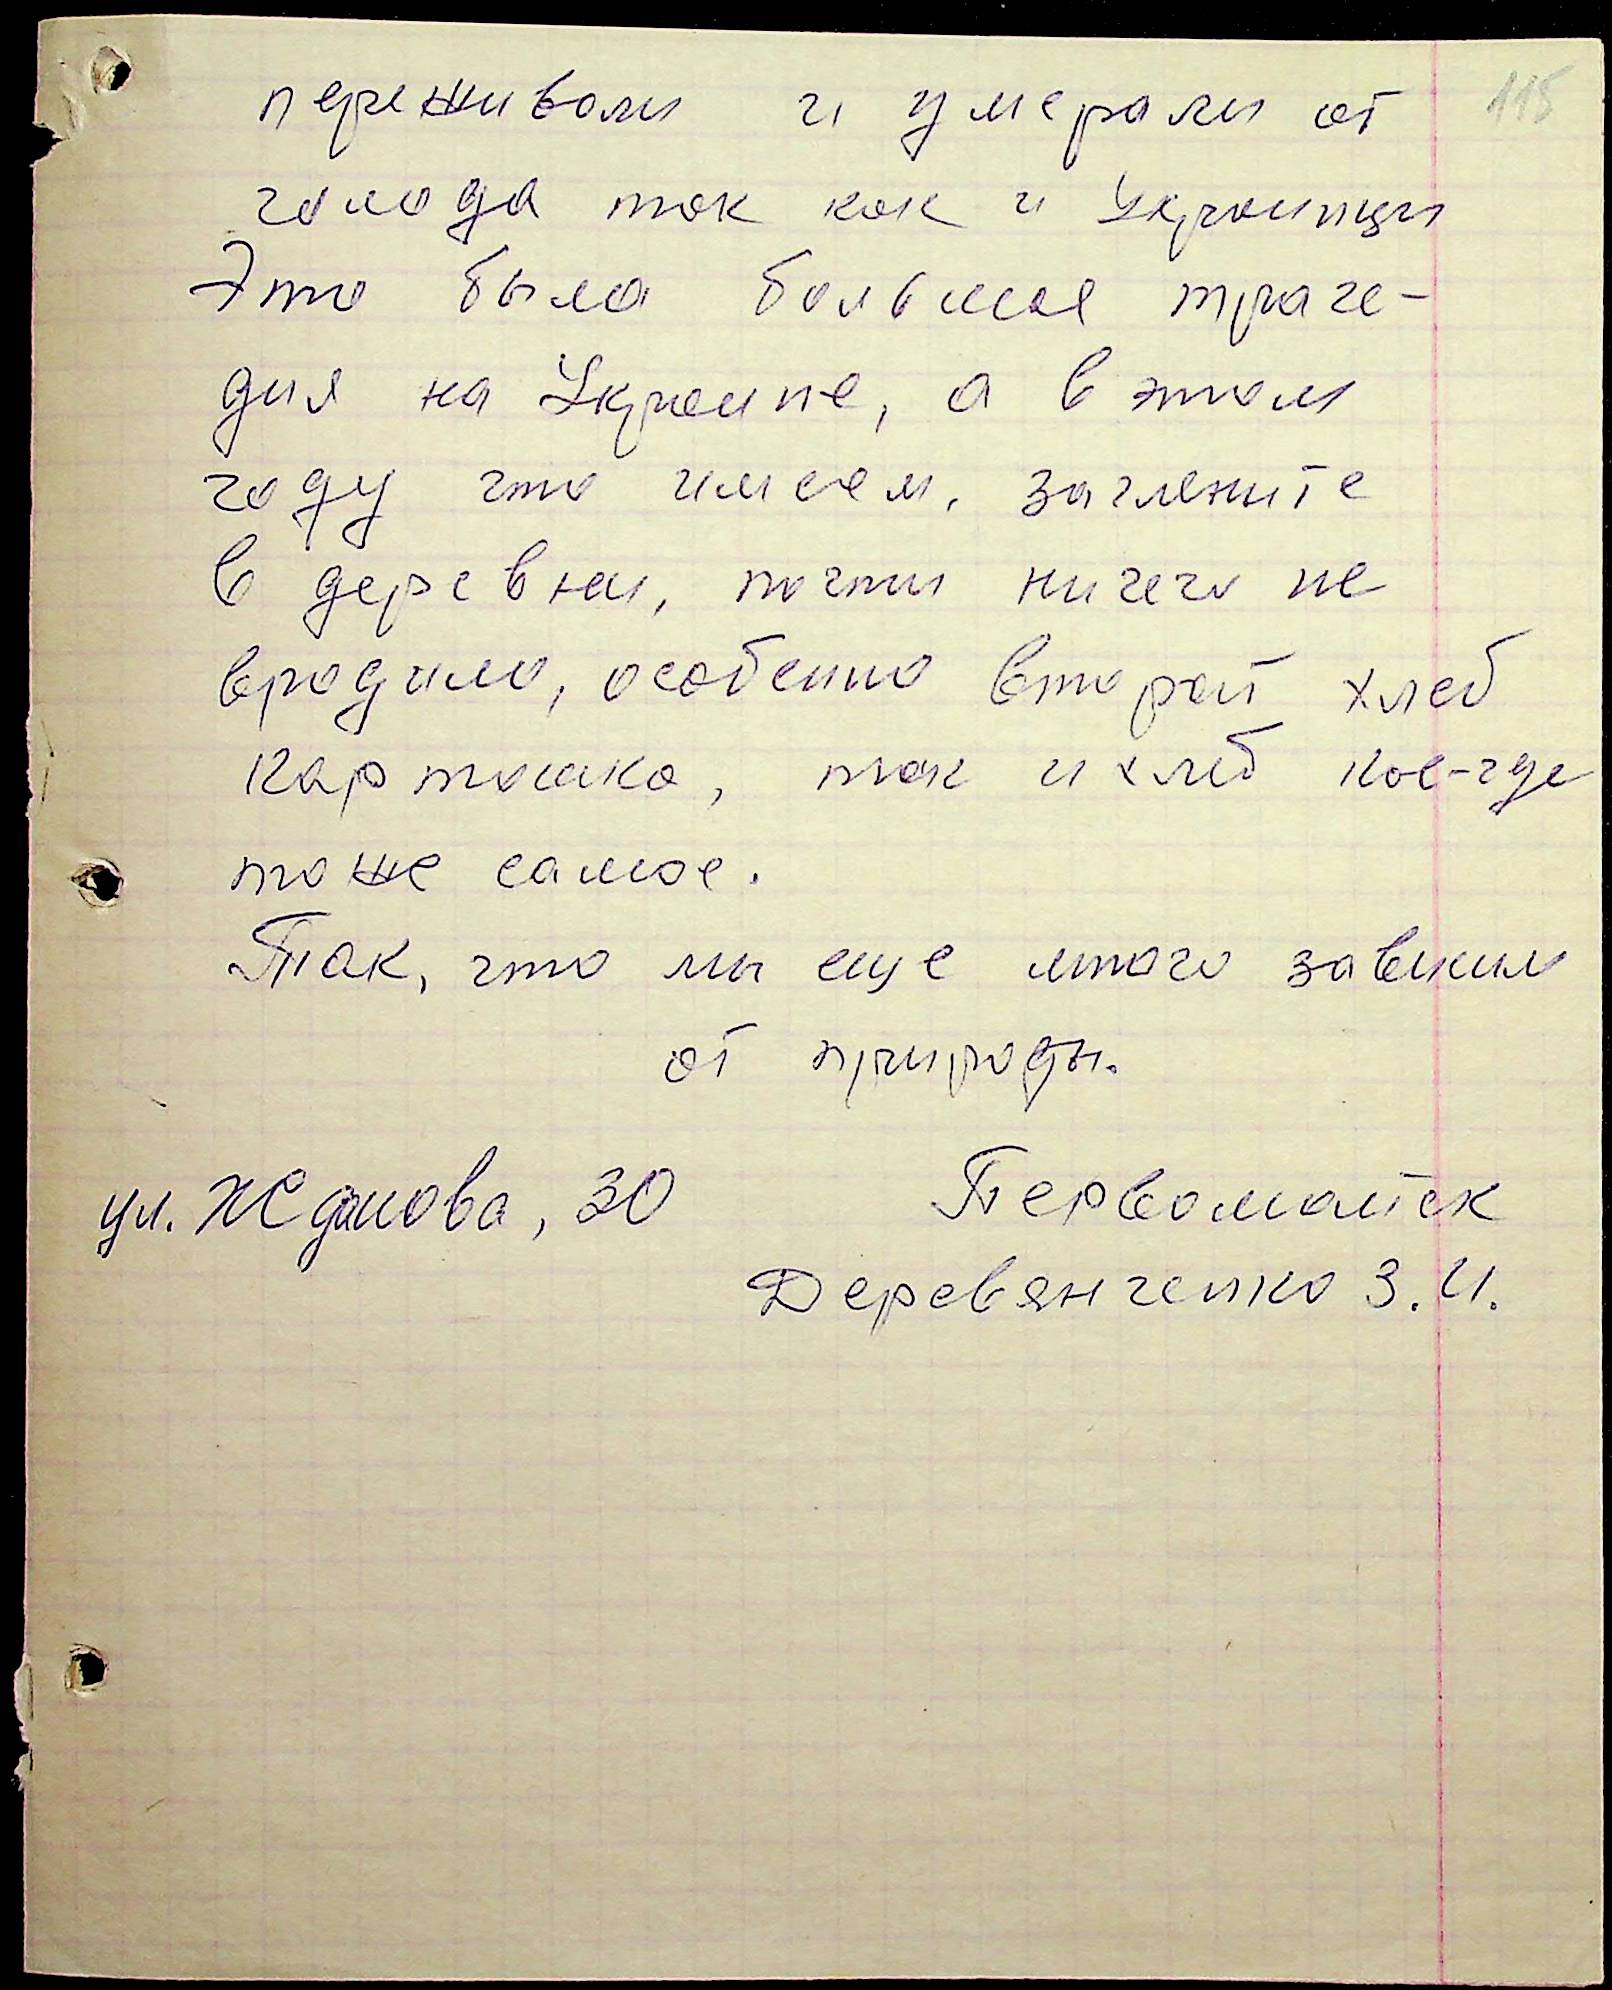 115
переживали и умерали от
голода так как и Украинцы
Это была большая траге-
дия на Украине, а в этом
году что имеем, загляните
в деревни, почти ничего не
вродило, особенно второй хлеб
картошка, так и хлеб кое-где
тоже самое.
Так, что мы еще много зависим
от природы.
ул. Жданова, 30 Первомайск
Деревянченко З.И.